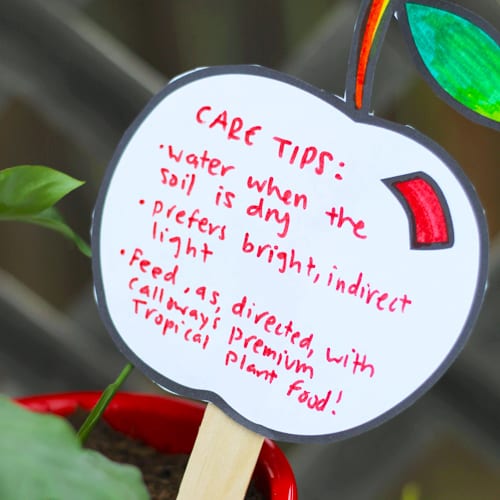 CARE TIPS:
• water when the
soil is dry
• prefers bright, indirect
light
• Feed, as, directed, with
calloway's premium
Tropical Plant Food!